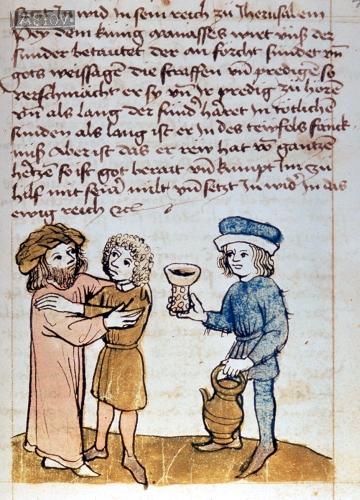 setzt wid in sein reich zu Jherusalem
Pey dem kung manasses wirt vns der
sunder betautet der an forcht sundet vn̄
gots weissagen die straffen vn̄ predigen so
verschmächt er sy vn̄ Ir predig zu horen
vn̄ als lang der sund' haret in totlichen
sunden als lang ist er In des teivfels fanck
nüß Aber ist das er rew hat vō gantzem
hetze so ist got berait vn̄ kumpt Im zu
hilf mit seiner milt vn̄ setzt In wid' In das
ewig reich etc